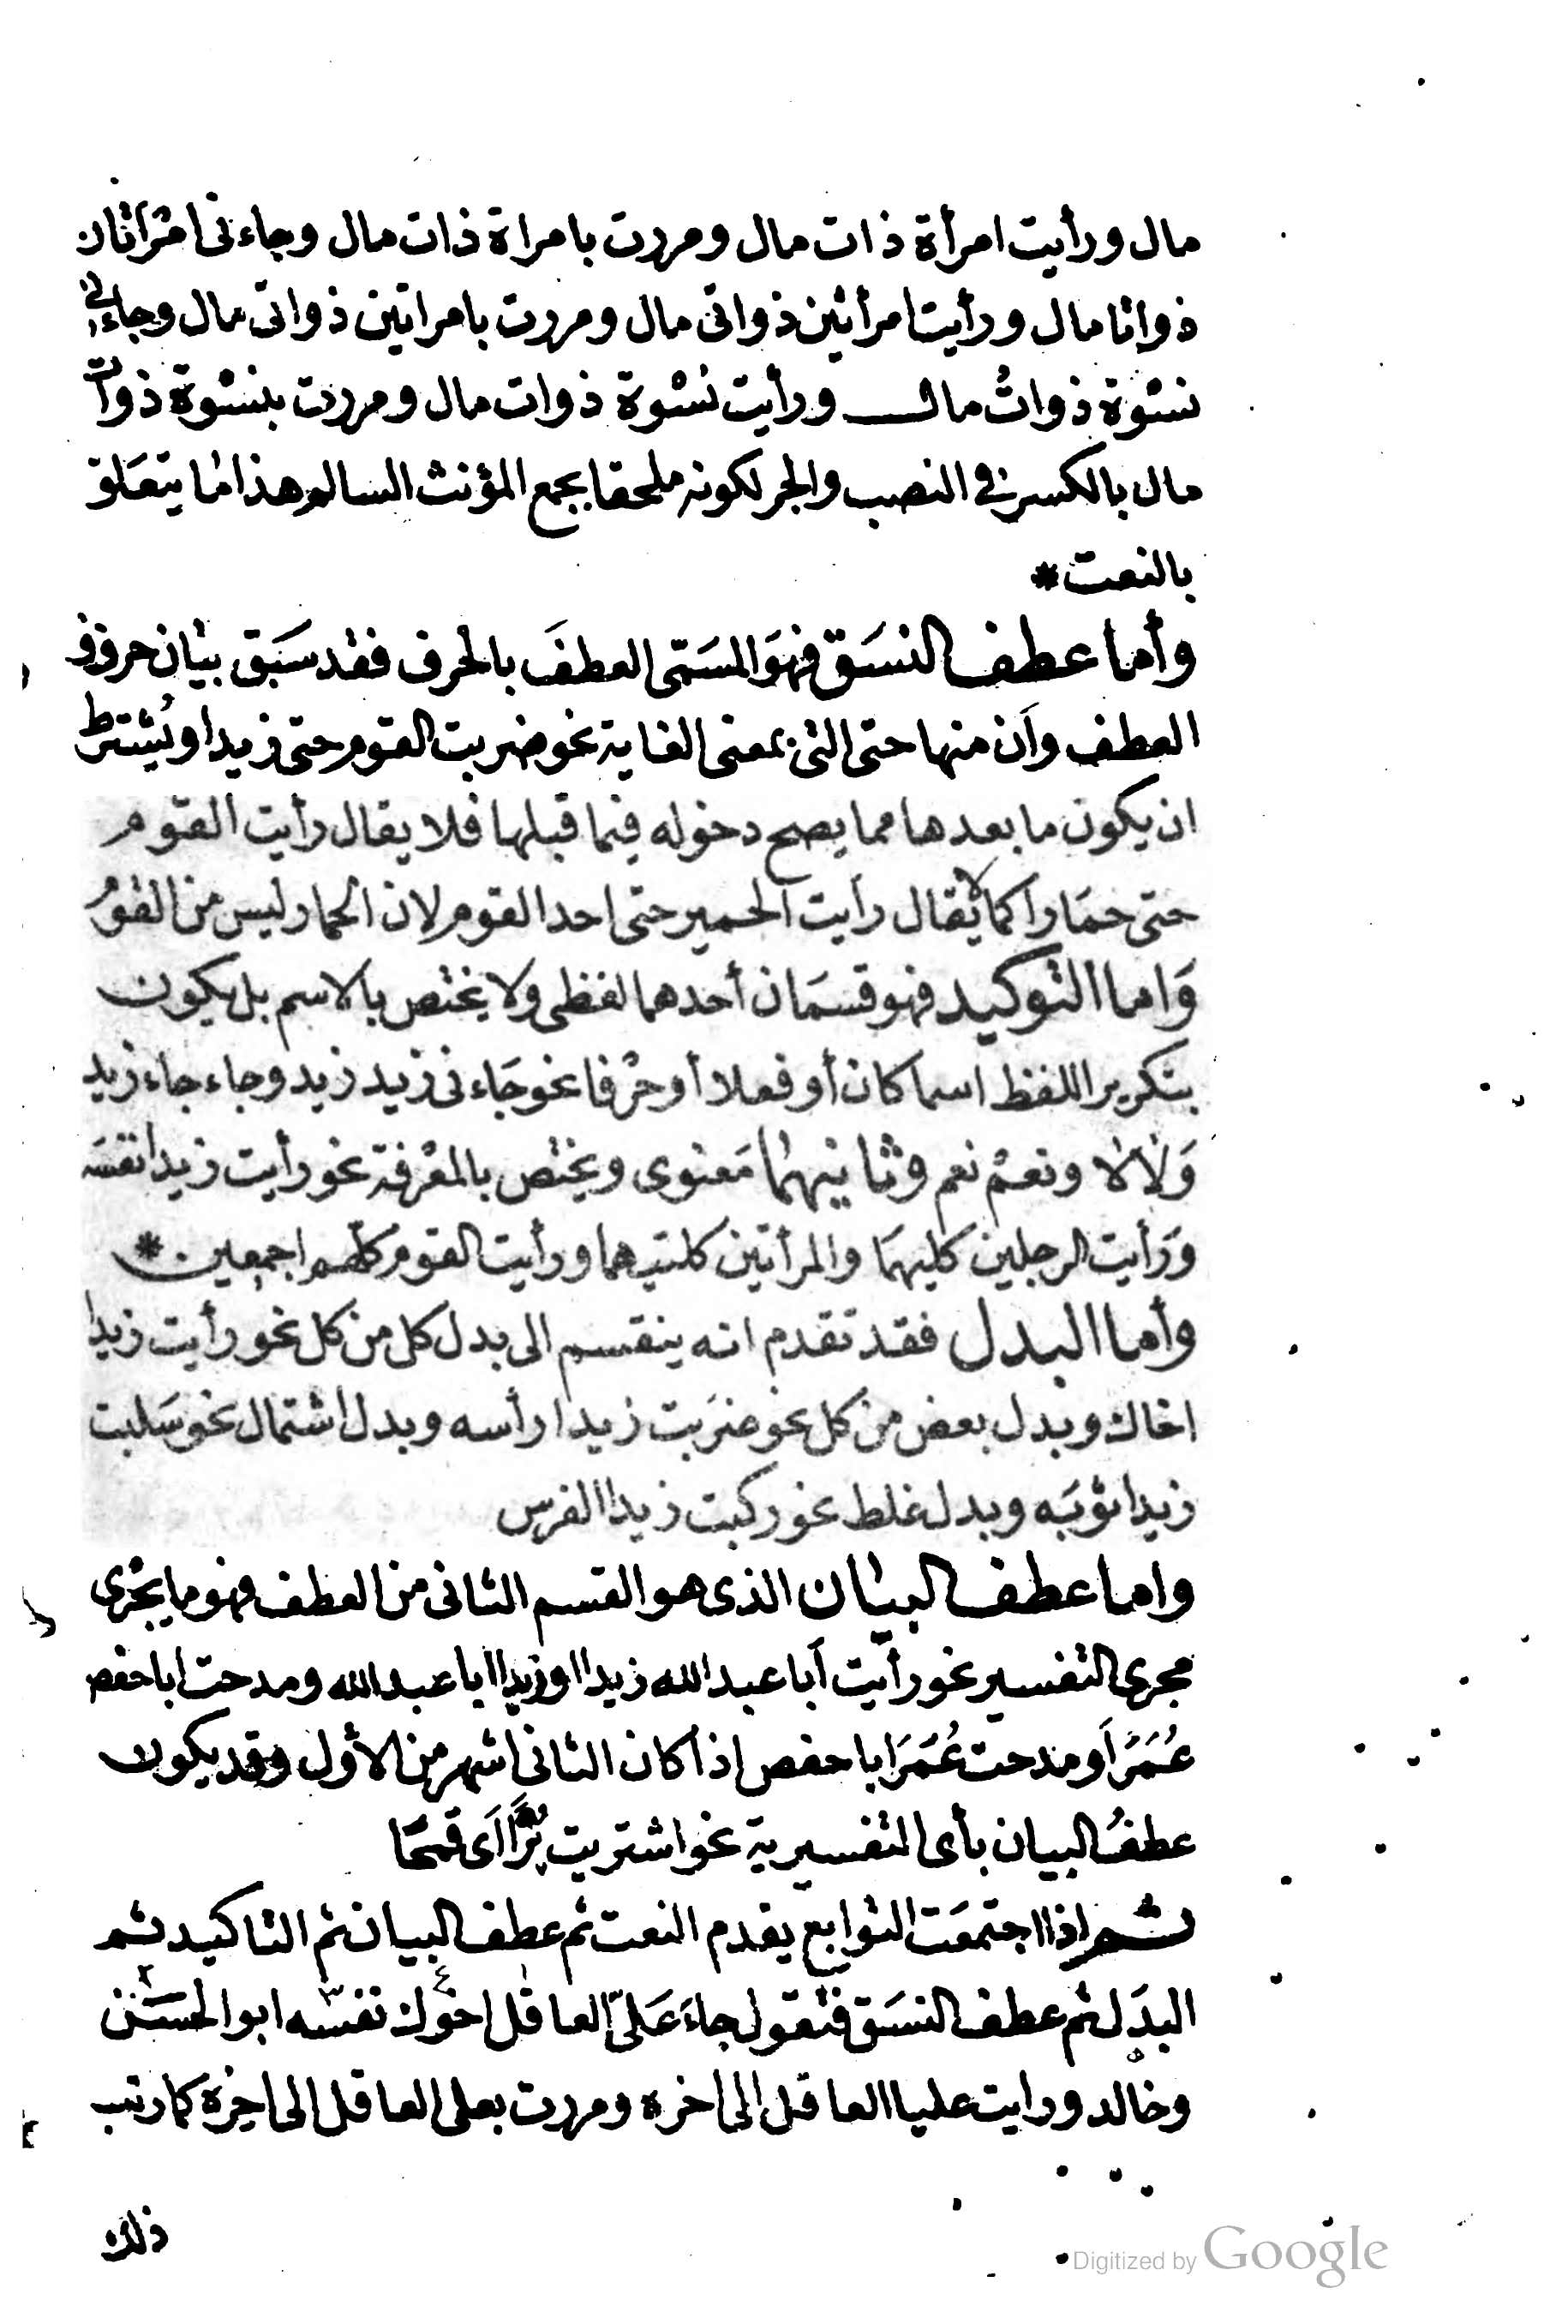 مال ورأيت امرأة ذات مال ومررت بامراة ذات مال وجاءنى امْرَأتان
ذواتا مال ورأيت امرأتين ذواتى مال ومررت بامراتين ذواتى مال وجاءنى
نسْوة ذواتُ مال ورأيت نسْوة ذوات مال ومررت بنسْوة ذوات
مال بالكسر فى النصب والجر لكونه ملحقا بجمع المؤنث السالم هذا ما يتعَلق
بالنعت *
وأما عطف النسَق فهوَ المسَمّى العطفَ بالحرف فقد سَبَق بيان حروف
العطف وأن منها حتى التى بمعنى الغاية نحو ضربت القوم حتى زيدا ويُشترط
ان يكون ما بعدها مما يصح دخوله فيما قبلها فلا يقال رأيت القوم
حتى حمَارا كما لا يُقال رأيت الحمير حتى احد القوم لان الحمار ليس من القوم
وَاما التوكيد فهو قسمَان أحدهما لفظى ولا يختص بالاسم بل يكون
بتكرير اللفظ اسما كان أو فعلا أو حرْفا نحو جَاءنى زيد زيد وجاء جاء زيد
وَلا لا ونعمْ نعم وثانيهما مَعنوى ويختص بالمعْرفة نحو رأيت زيدا نفسَه
وَرَأيت الرجلين كليهمَا والمرأتين كلتيهما ورأيت القوم كلهم اجمعين *
وأما البدل فقد تقدم انه ينقسم الى بدل كل من كل نحو رأيت زيدا
اخاك وبدل بعض من كل نحو ضرَبت زيدا رأسه وبدل اشتمال نحو سَلبت
زيدا ثوبَه وبدل غلط نحو ركبت زيدا الفرس
واما عطف البيان الذى هو القسم الثانى من العطف فهو ما يجْرى
مجرى التفسير نحو رأيت أبا عبد الله زيدا او زيدا ابا عبد الله ومدحت ابا حفص
عُمَرَ أو مدحت عُمَرَ ابا حفص اذا كان الثانى اشهر من الأول وقد يكون
عطفُ البيان بأى التفسيرية نحو اشتريت بُرًّا أى قمحًا
ثم اذا اجتمعَت التوابع يقدم النعت ثم عطف البيان ثم التاكيد ثم
البدَل ثم عطف النسَق فتقول جاءَ عَلىّ العاقل اخوك نفسه ابو الحسَن
وخالد ورايت عليا العاقل الى اخره ومررت بعلى العاقل الى اخِرِه كما رتب
ذلك
Digitized by Google